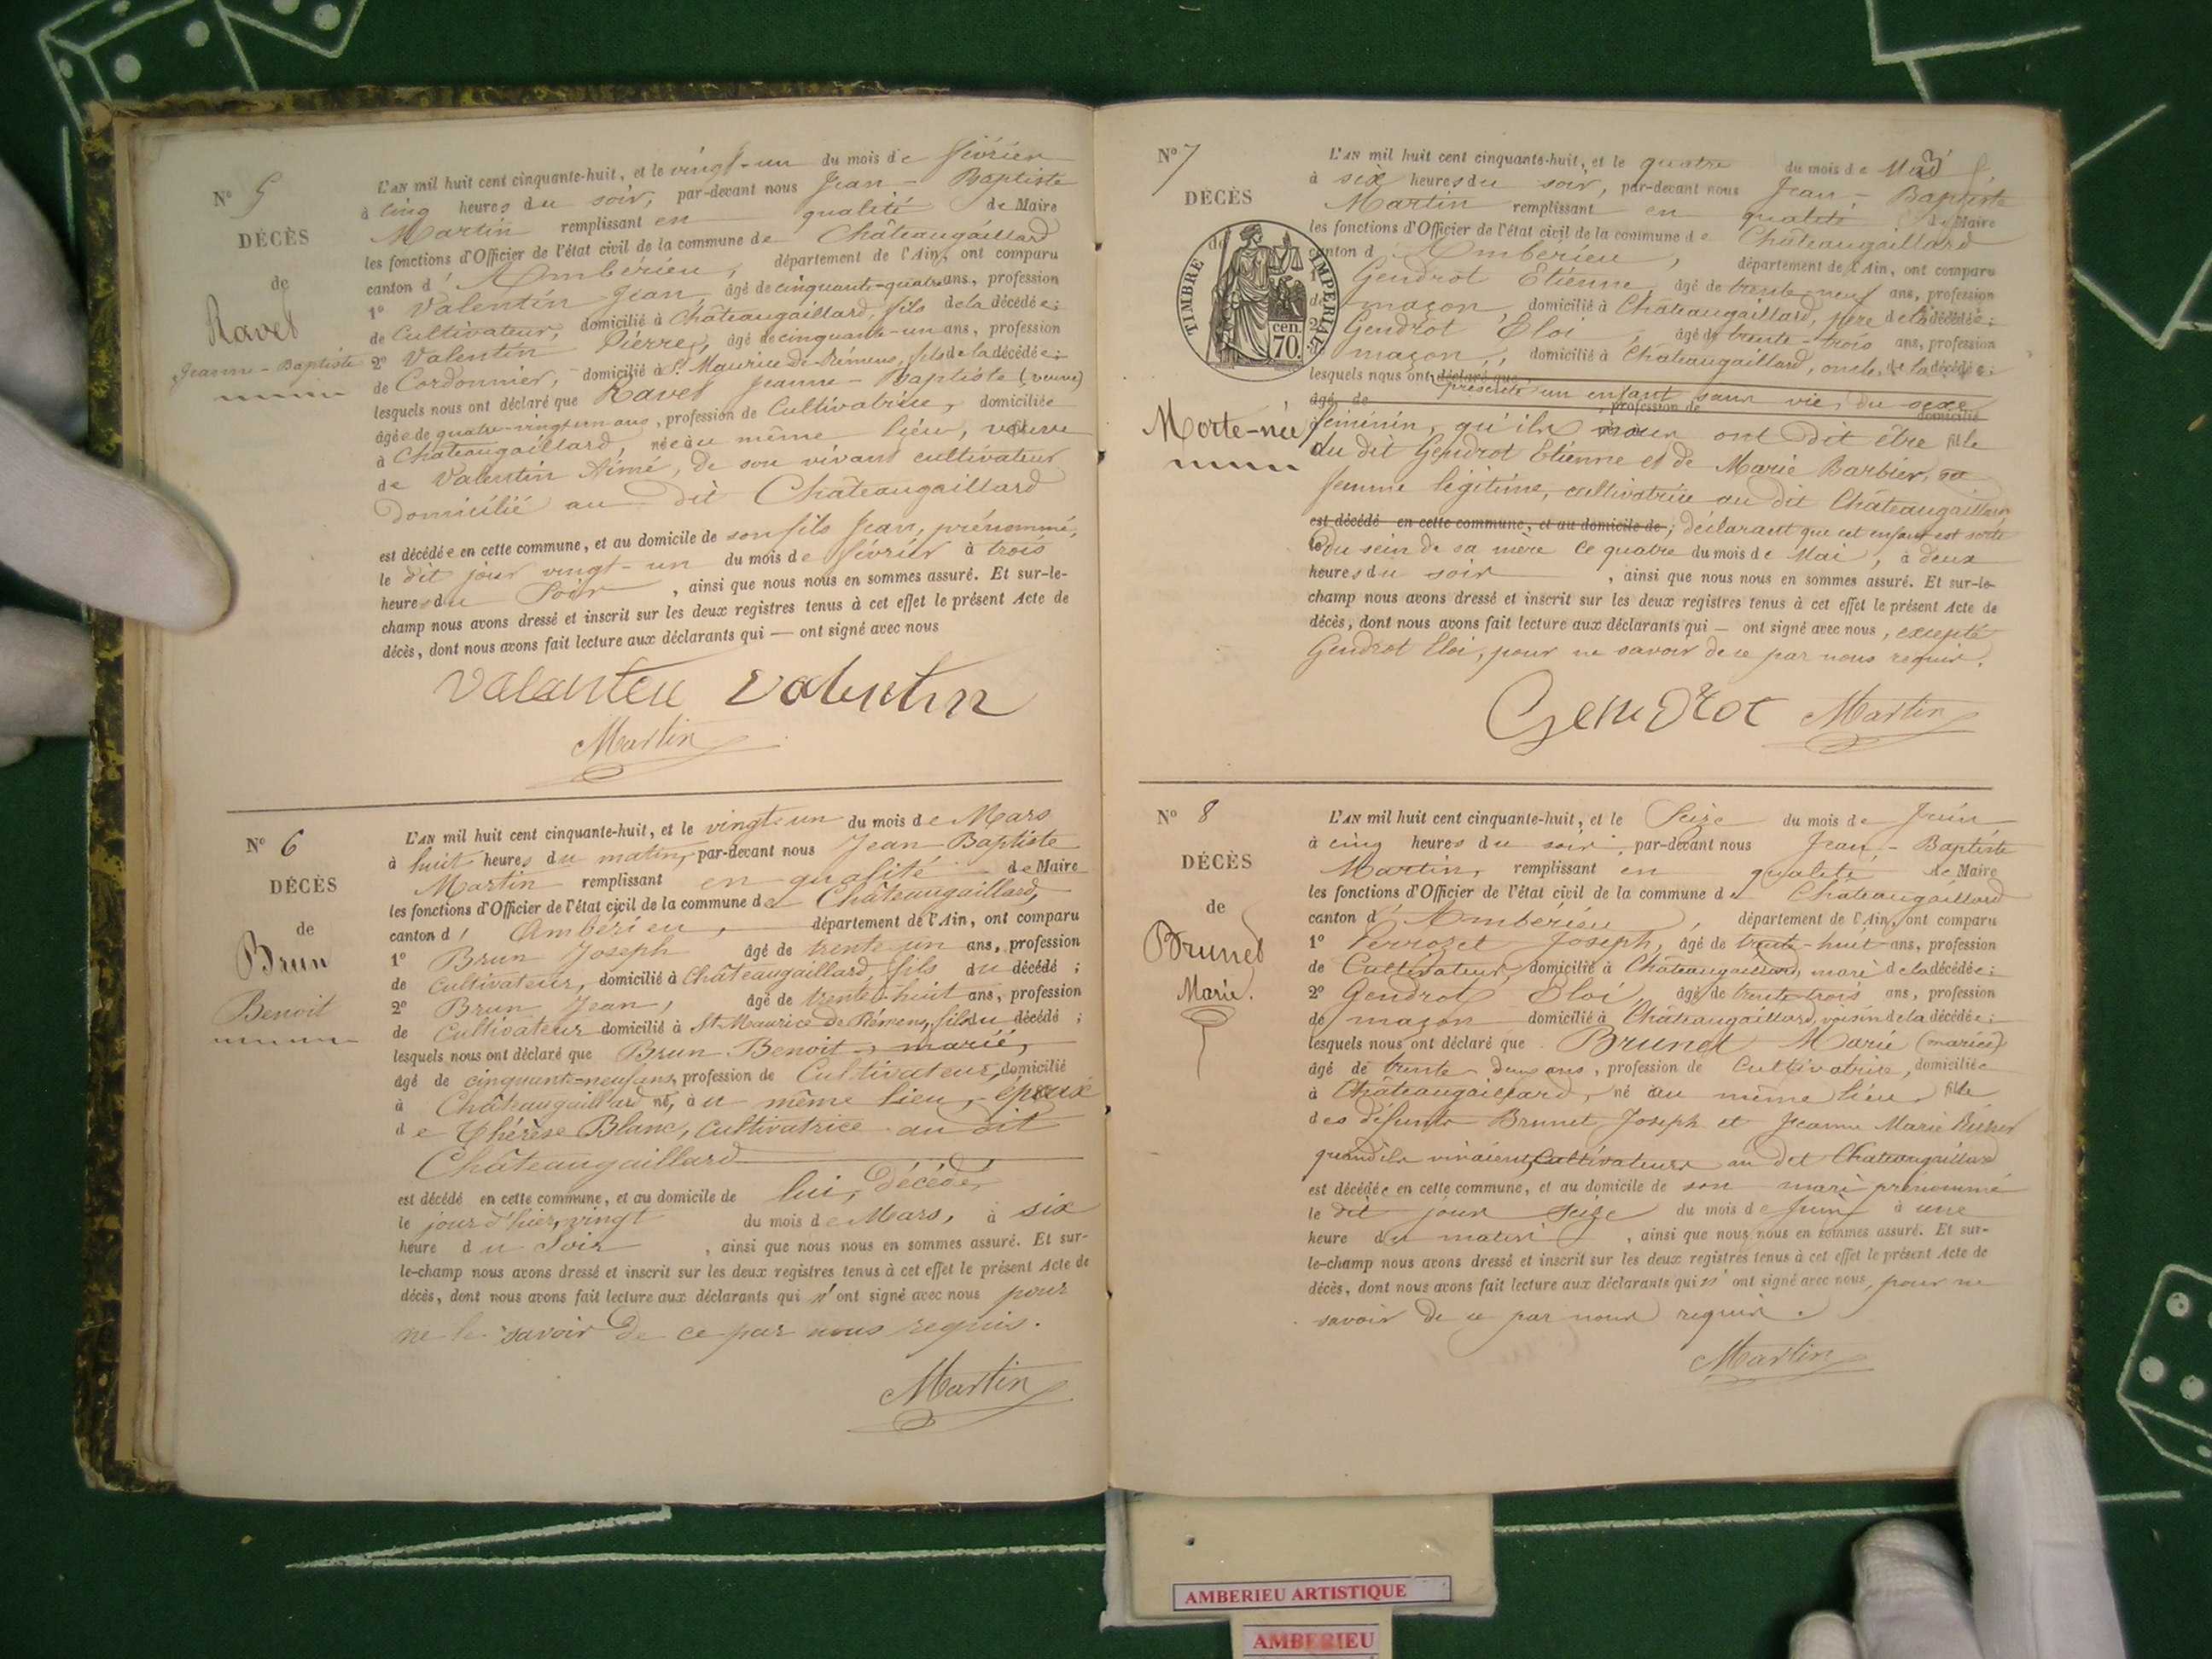 N° 5
DÉCÈS
de
Ravet
Jeanne-Baptiste
L'AN mil huit cent cinquante-huit, et le vingt-un du mois de février
à cinq heures du soir, par-devant nous Jean-Baptiste
Martin remplissant en qualité de Maire
les fonctions d'Officier de l'état civil de la commune de Châteaugaillard
canton d'Ambérieu, département de l'Ain, ont comparu
1° Valentin Jean âgé de cinquante-quatre ans, profession
de Cultivateur, domicilié à Châteaugaillard, fils de la décédée;
2° Valentin Pierre, âgé de cinquante-un ans, profession
de Cordonnier, domicilié à St Maurice de Rémens, fils de la décédée;
lesquels nous ont déclaré que Ravet Jeanne-Baptiste (veuve)
âgée de quatre-vingt-un ans, profession de Cultivatrice, domiciliée
à Châteaugaillard, née au même lieu, veuve
de Valentin Aimé, de son vivant cultivateur
domicilié au dit Châteaugaillard
est décédée en cette commune, et au domicile de son fils Jean, prénommé,
le dit jour vingt-un du mois de février à trois
heures du Soir, ainsi que nous nous en sommes assuré. Et sur-le-
champ nous avons dressé et inscrit sur les deux registres tenus à cet effet le présent Acte de
décès, dont nous avons fait lecture aux déclarants qui — ont signé avec nous
Valentin Valentin
Martin
N° 6
DÉCÈS
de
Brun
Benoit
L'AN mil huit cent cinquante-huit, et le vingt-un du mois de Mars
à huit heures du matin, par-devant nous Jean Baptiste
Martin remplissant en qualité de Maire
les fonctions d'Officier de l'état civil de la commune de Châteaugaillard,
canton d'Ambérieu, département de l'Ain, ont comparu
1° Brun Joseph âgé de trente un ans, profession
de cultivateur, domicilié à Châteaugaillard, fils du décédé;
2° Brun Jean, âgé de trente-huit ans, profession
de Cultivateur domicilié à St Maurice de Rémens, fils du décédé;
lesquels nous ont déclaré que Brun Benoit, marié,
âgé de cinquante-neuf ans, profession de Cultivateur, domicilié
à Châteaugaillard né, au même lieu, époux
de Thérèse Blanc, cultivatrice au dit
Châteaugaillard
est décédé en cette commune, et au domicile de lui, décédé,
le jour d'hier, vingt du mois de Mars, à six
heure du Soir, ainsi que nous nous en sommes assuré. Et sur-
le-champ nous avons dressé et inscrit sur les deux registres tenus à cet effet le présent Acte de
décès, dont nous avons fait lecture aux déclarants qui n'ont signé avec nous pour
ne le savoir de ce par nous requis.
Martin
N° 7
DÉCÈS
de
TIMBRE IMPÉRIAL
cen. 70.
Morte-née
L'AN mil huit cent cinquante-huit, et le quatre du mois de Mai
à six heures du soir, par-devant nous Jean-Baptiste
Martin remplissant en qualité de Maire
les fonctions d'Officier de l'état civil de la commune de Châteaugaillard
canton d'Amberieu, département de l'Ain, ont comparu
1° Gendrot Etienne, âgé de trente-neuf ans, profession
de maçon, domicilié à Châteaugaillard, père de la décédée;
2° Gendrot Eloi, âgé de trente-trois ans, profession
de maçon, domicilié à Châteaugaillard, oncle de la décédée;
lesquels nous ont déclaré que
présenté un enfant sans vie, du sexe
âgé de profession de domicilié
féminin, qu'ils nous ont dit être fille
du dit Gendrot Etienne et de Marie Barbier, sa
femme légitime, cultivatrice au dit Châteaugaillard
est décédé en cette commune, et au domicile de; déclarant que cet enfant est sorti
le du sein de sa mère ce quatre du mois de Mai, à deux
heures du soir, ainsi que nous nous en sommes assuré. Et sur-le-
champ nous avons dressé et inscrit sur les deux registres tenus à cet effet le présent Acte de
décès, dont nous avons fait lecture aux déclarants qui — ont signé avec nous, excepté
Gendrot Eloi, pour ne savoir de ce par nous requis.
Gendrot Martin
N° 8
DÉCÈS
de
Brunet
Marie.
L'AN mil huit cent cinquante-huit, et le Seize du mois de Juin
à cinq heures du soir, par-devant nous Jean-Baptiste
Martin, remplissant en qualité de Maire
les fonctions d'Officier de l'état civil de la commune de Chateaugaillard
canton d'Amberieu, département de l'Ain, ont comparu
1° Perrozet Joseph, âgé de trente-huit ans, profession
de Cultivateur, domicilié à Châteaugaillard, mari de la décédée;
2° Gendrot Eloi, âgé de trente-trois ans, profession
de maçon domicilié à Châteaugaillard, voisin de la décédée;
lesquels nous ont déclaré que Brunet Marie (mariée)
âgé de trente-deux ans, profession de cultivatrice, domiciliée
à Châteaugaillard, né au même lieu, fille
des défunts Brunet Joseph et Jeanne Marie
quand ils vivaient, Cultivateurs au dit Chateaugaillard
est décédée en cette commune, et au domicile de son mari prénommé
le dit jour seize du mois de Juin à une
heure du matin, ainsi que nous nous en sommes assuré. Et sur-
le-champ nous avons dressé et inscrit sur les deux registres tenus à cet effet le présent Acte de
décès, dont nous avons fait lecture aux déclarants qui n'ont signé avec nous, pour ne
savoir de ce par nous requis.
Martin
AMBERIEU ARTISTIQUE
AMBERIEU